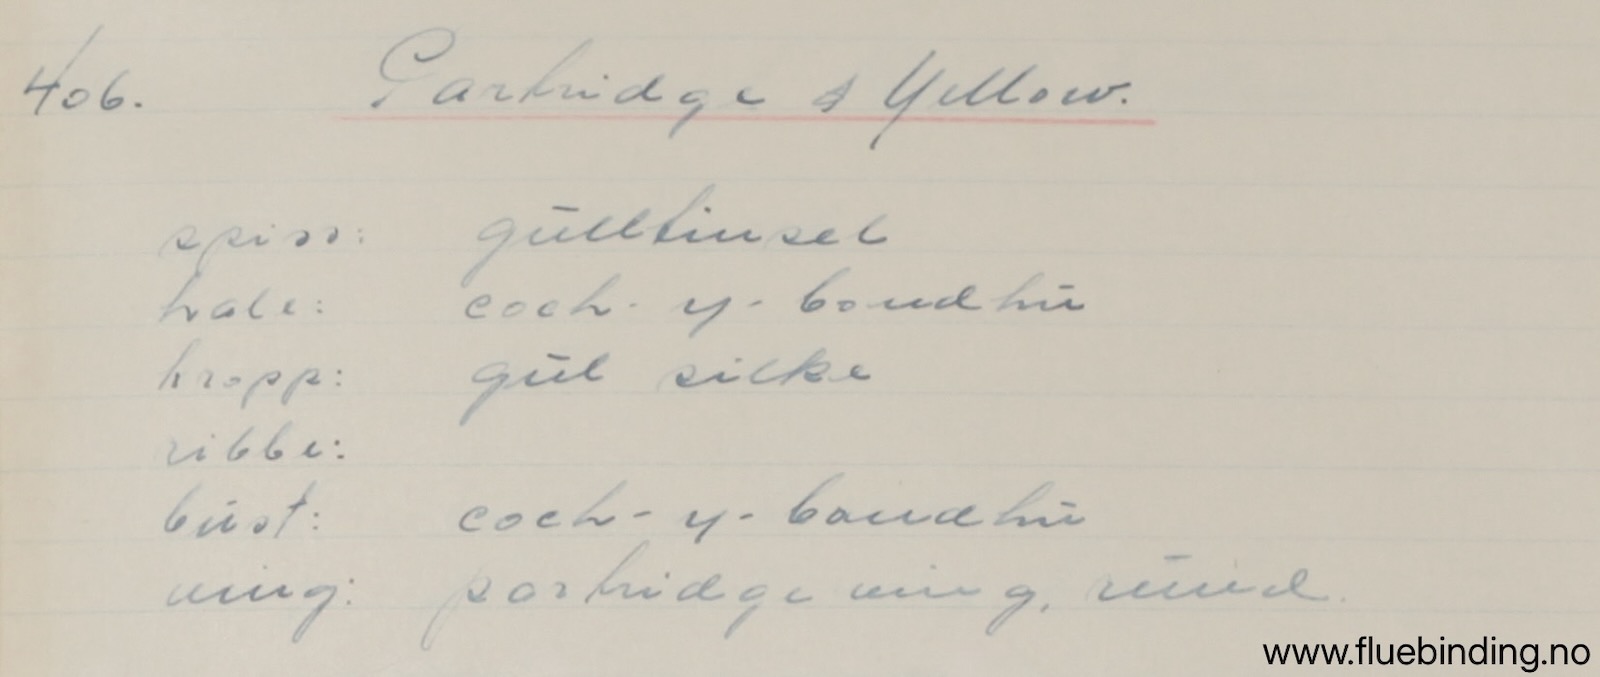 406. Partridge & Yellow.
spiss: gulltinsel
hale: coch-y-bondhu
kropp: gul silke
ribbe:
bust: coch-y-bondhu
ving: partridge ving, rund.
www.fluebinding.no